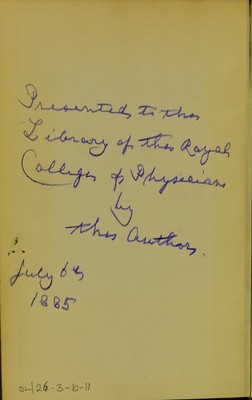 Presented to the
Library of the Royal
College of Physicians
by
the Author.
July 6th
1885
SL/26-3-b-11